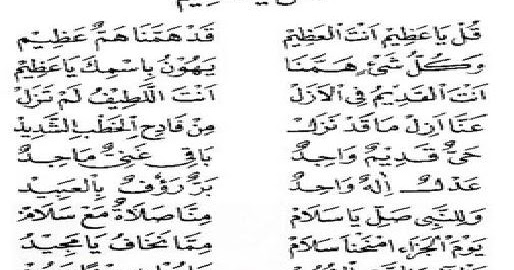 قُلْ يَا عَظِيْم اَنْتَ الْعَظِيْم قَدْ هَمَّنَا هَمٌّ عَظِيْم
وَكُلُّ شَيْءٍ هَمَّنَا يَهُوْنُ بِاسْمِكَ يَاعَظِيْم
اَنْتَ الْقَدِيْمُ فِى الْاَزَلْ اَنْتَ اللَّطِيْفُ لَمْ تَزَلْ
عَنَّا اَزِلْ مَا قَدْ نَزَلْ مِنْ فَادِحِ الْخَطْبِ الشَّدِيْد
حَيٌّ قَدِيْمٌ وَاجِدٌ بَاقِى غَنِيٌّ مَاجِدٌ
عَدْلٌ اِلٰهٌ وَاحِدٌ بَرٌّ رَؤُفٌ بِالْعَبِيْد
وَلِلنَّبِى صَلِّ يَا سَلَامْ مِنَّا صَلَاةٌ مَعْ سَلَامْ
يَوْمَ الْجَزَاءِ امْنَحْنَا سَلَامْ مِمَّا نَخَافُ يَا مَجِيْدُ